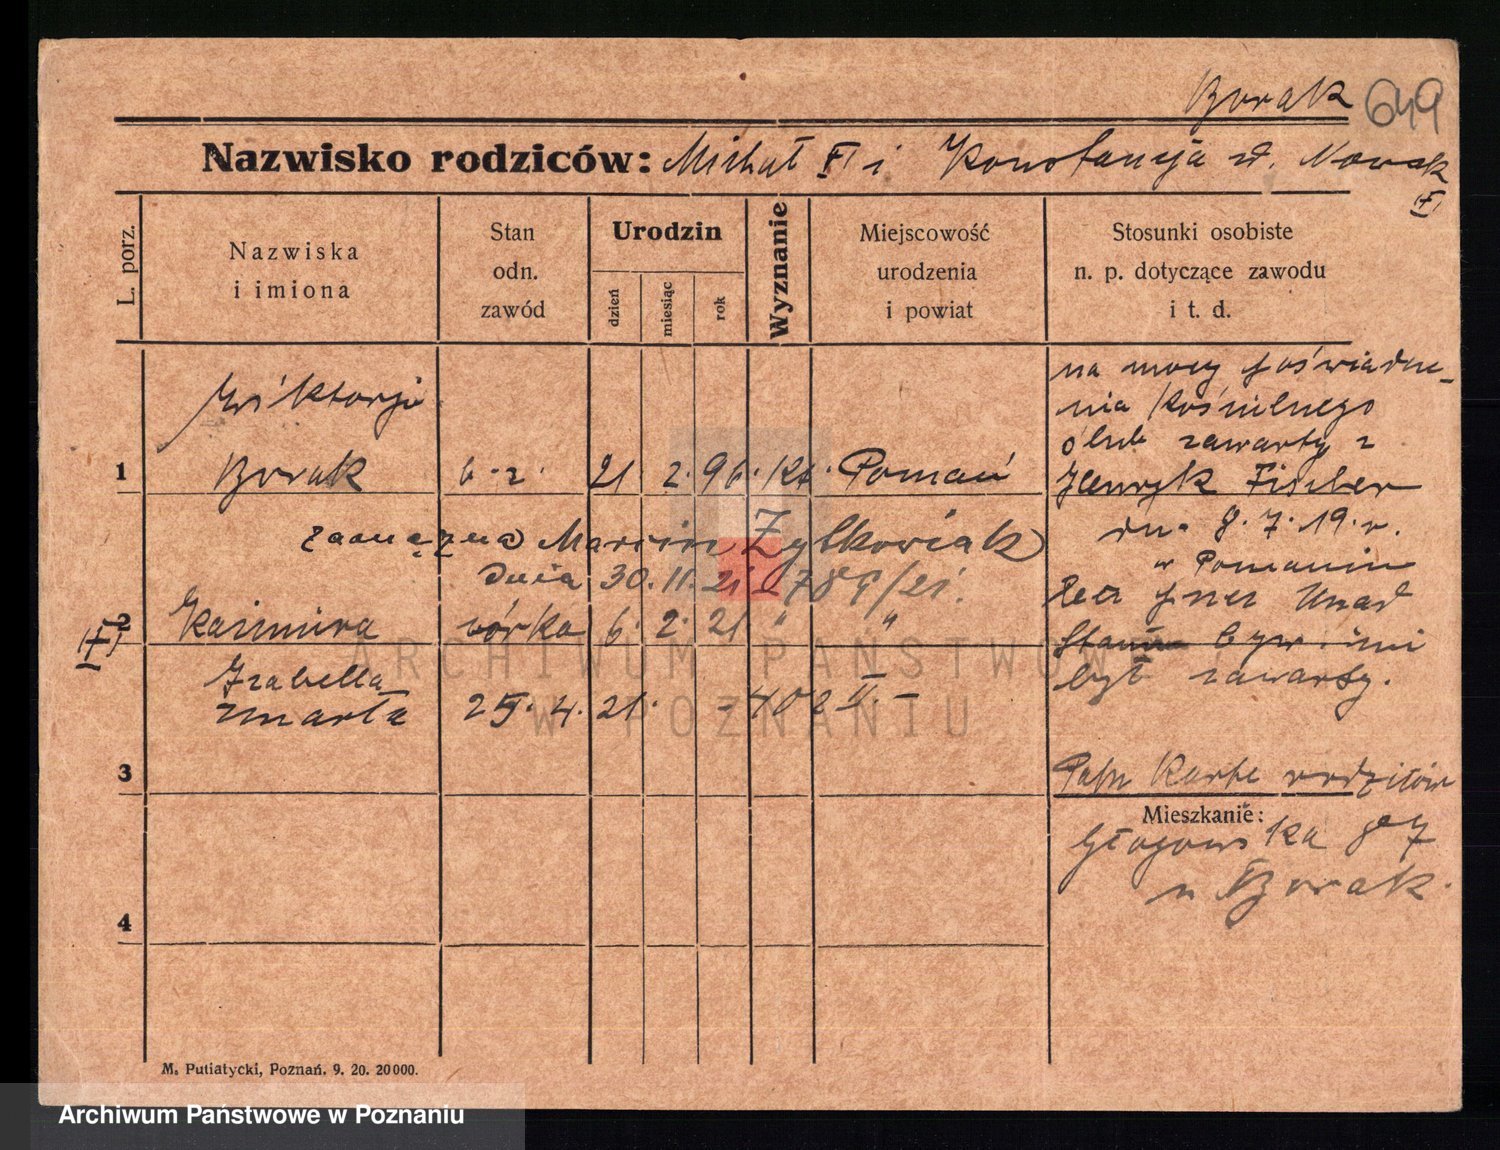 Borak 649
Nazwisko rodziców: Michał i Konstancja z d. Nowak
L. porz.
Nazwiska i imiona
Stan odn. zawód
Urodzin
dzień
miesiąc
rok
Wyznanie
Miejscowość urodzenia i powiat
Stosunki osobiste n. p. dotyczące zawodu i t. d.
Wiktorja
1 Borak b. z. 21. 2. 96. kt. Poznań
zamężna Marcin Żyłkowiak
dnia 30. 11. 21 789/21.
2 Kazimira córka 6. 2. 21 " "
Izabella
zmarła 25. 4. 21. - 402 II. -
3
4
na mocy poświadcze-
nia Kościelnego
ślub zawarty z
Henryk Fischer
dn. 8. 7. 19. r.
w Poznaniu
lecz przez Urząd
Stanu Cyw.
był zawarty.
Patrz Kartę rodziców
Mieszkanie:
Głogowska
u Borak.
M. Putiatycki, Poznań. 9. 20. 20000.
ARCHIWUM PAŃSTWOWE
W POZNANIU
Archiwum Państwowe w Poznaniu